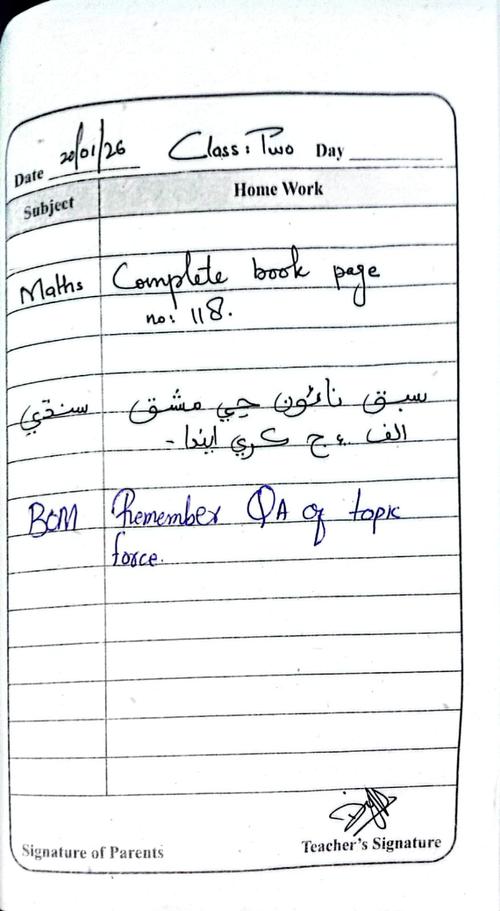 Date 20/01/26 Class: Two Day
Subject Home Work
Maths Complete book page
no: 118.
سنڌي سبق نائون جي مشق
الف ۽ ج ڪري ايندا-
BCM Remember QA of topic
force.
Signature of Parents Teacher's Signature